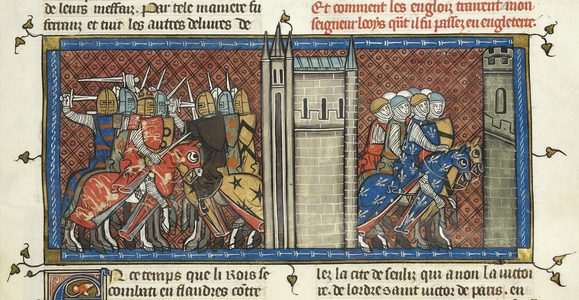 de leurs meffaiz. Par tele maniere fu
ferranz et tuit les autres deliures de
Et comment les engloiz trairent mon
seigneur loys qñt il fu passez en engleterre.
En ce temps que li Rois se
combati en flandres cõtre
lez la cite de senliz qui a non la victoi
re. de lordre saint victor de paris. en